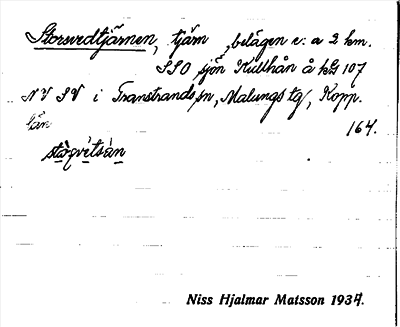 Storsvedtjärnen, tjärn, belägen c:a 2 km.
SSO sjön Kullhån å kbl 107
NV SV i Transtrands sn, Malungs tg, Kopp.
län 164.
Niss Hjalmar Matsson 1934.